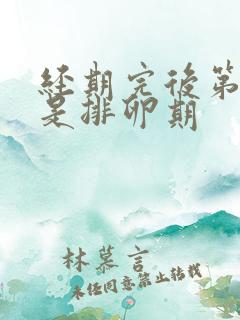 经期完后第
是排卵期
林慕言
未经同意禁止转载